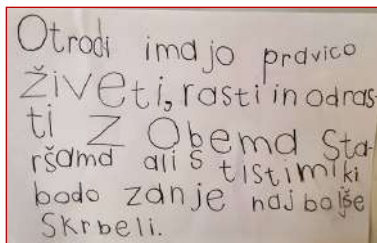 Otroci imajo pravico
živeti, rasti in odras-
ti z obema sta-
ršama ali s tistimi ki
bodo zanje najboljše
skrbeli.